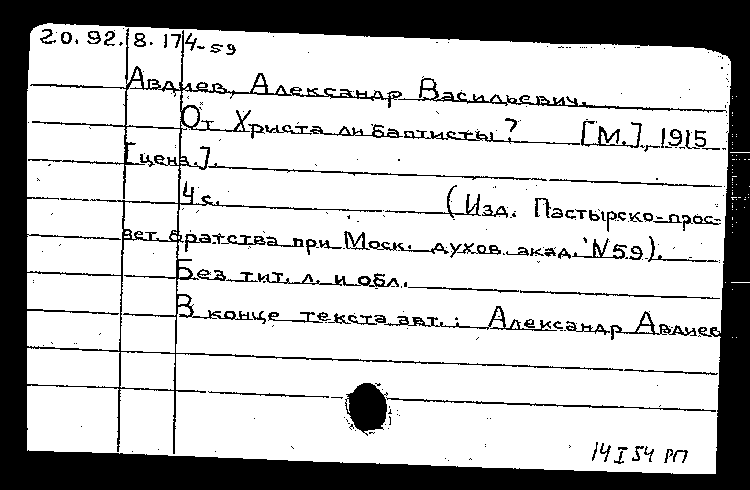 20.92.8.174-59
Авдиев, Александр Васильевич.
От Христа ли баптисты? [М.], 1915
[ценз.].
4 с. (Изд. Пастырско-прос-
вет. братства при Моск. духов. акад. №59).
Без тит. л. и обл.
В конце текста авт.: Александр Авдиев
14 I 54 РП